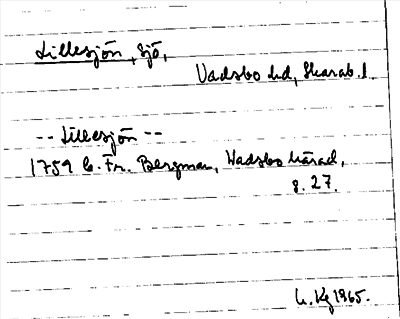 Lillesjön, sjö,
Vadsbo hd, Skarab. l.
-- Lillesjön --
1759 C. Fr. Bergman, Wadsbo härad,
s. 27.
Kg 1965.